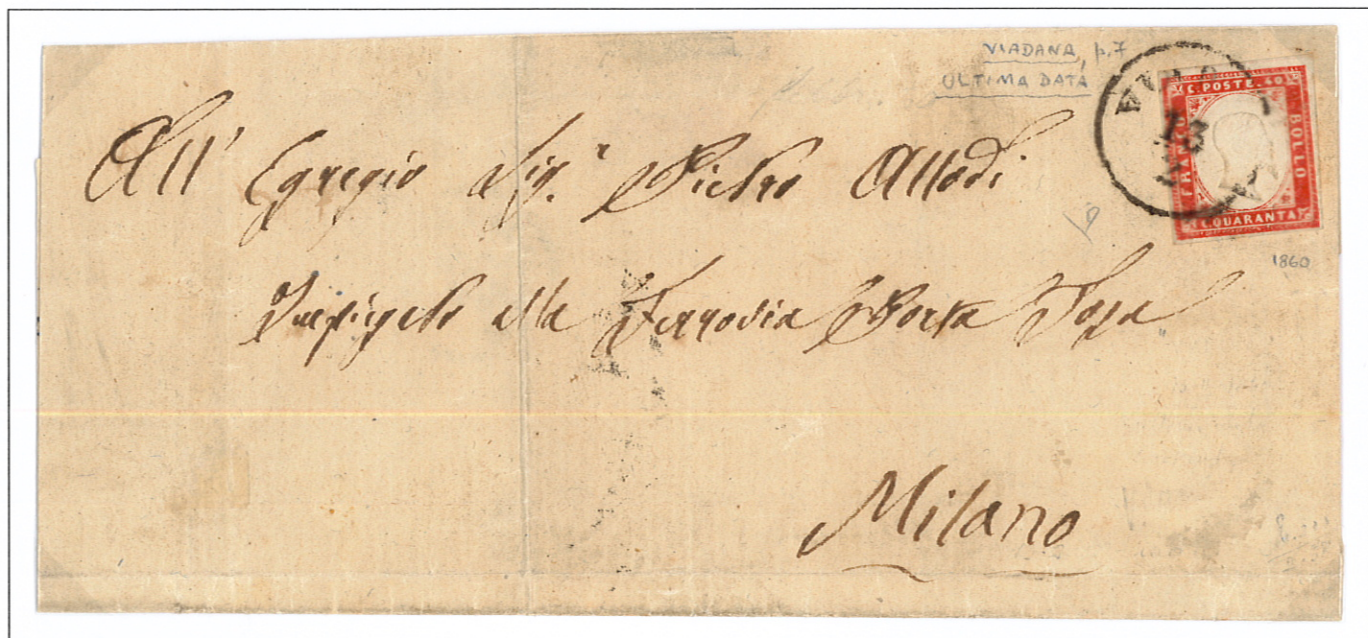 VIADANA, p.7
ULTIMA DATA
C. POSTE. 40
FRANCO
BOLLO
C. QUARANTA
13
1860
All' Egregio Sig.r Pietro Allodi
Impiegato alla Ferrovia Porta Tosa
Milano